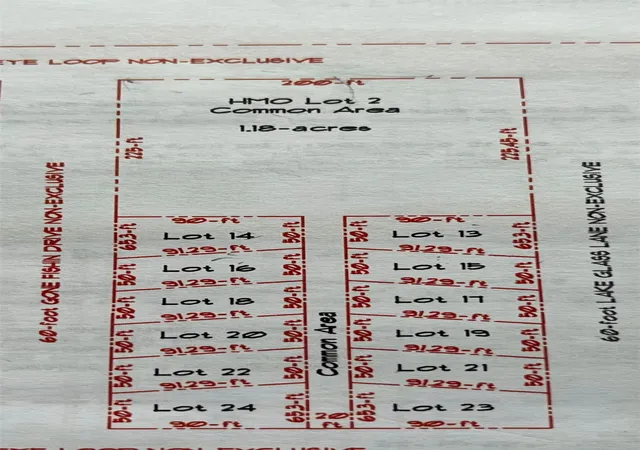 EYE LOOP NON-EXCLUSIVE
200-ft
HMO Lot 2
Common Area
1.18-acres
225-ft
225.45-ft
60-foot GONE FISHIN DRIVE NON-EXCLUSIVE
60-foot LAKE GLASS LANE NON-EXCLUSIVE
90-ft 90-ft
65.3-ft Lot 14 50-ft 50-ft Lot 13 65.3-ft
91.29-ft 91.29-ft
50-ft Lot 16 50-ft 50-ft Lot 15 50-ft
91.29-ft 91.29-ft
50-ft Lot 18 50-ft 50-ft Lot 17 50-ft
91.29-ft 91.29-ft
Common Area
50-ft Lot 20 50-ft 50-ft Lot 19 50-ft
91.29-ft 91.29-ft
50-ft Lot 22 50-ft 50-ft Lot 21 50-ft
91.29-ft 91.29-ft
50-ft Lot 24 65.3-ft 20 65.3-ft Lot 23 50-ft
90-ft ft 90-ft
LOOP NON-EXCLUSIVE